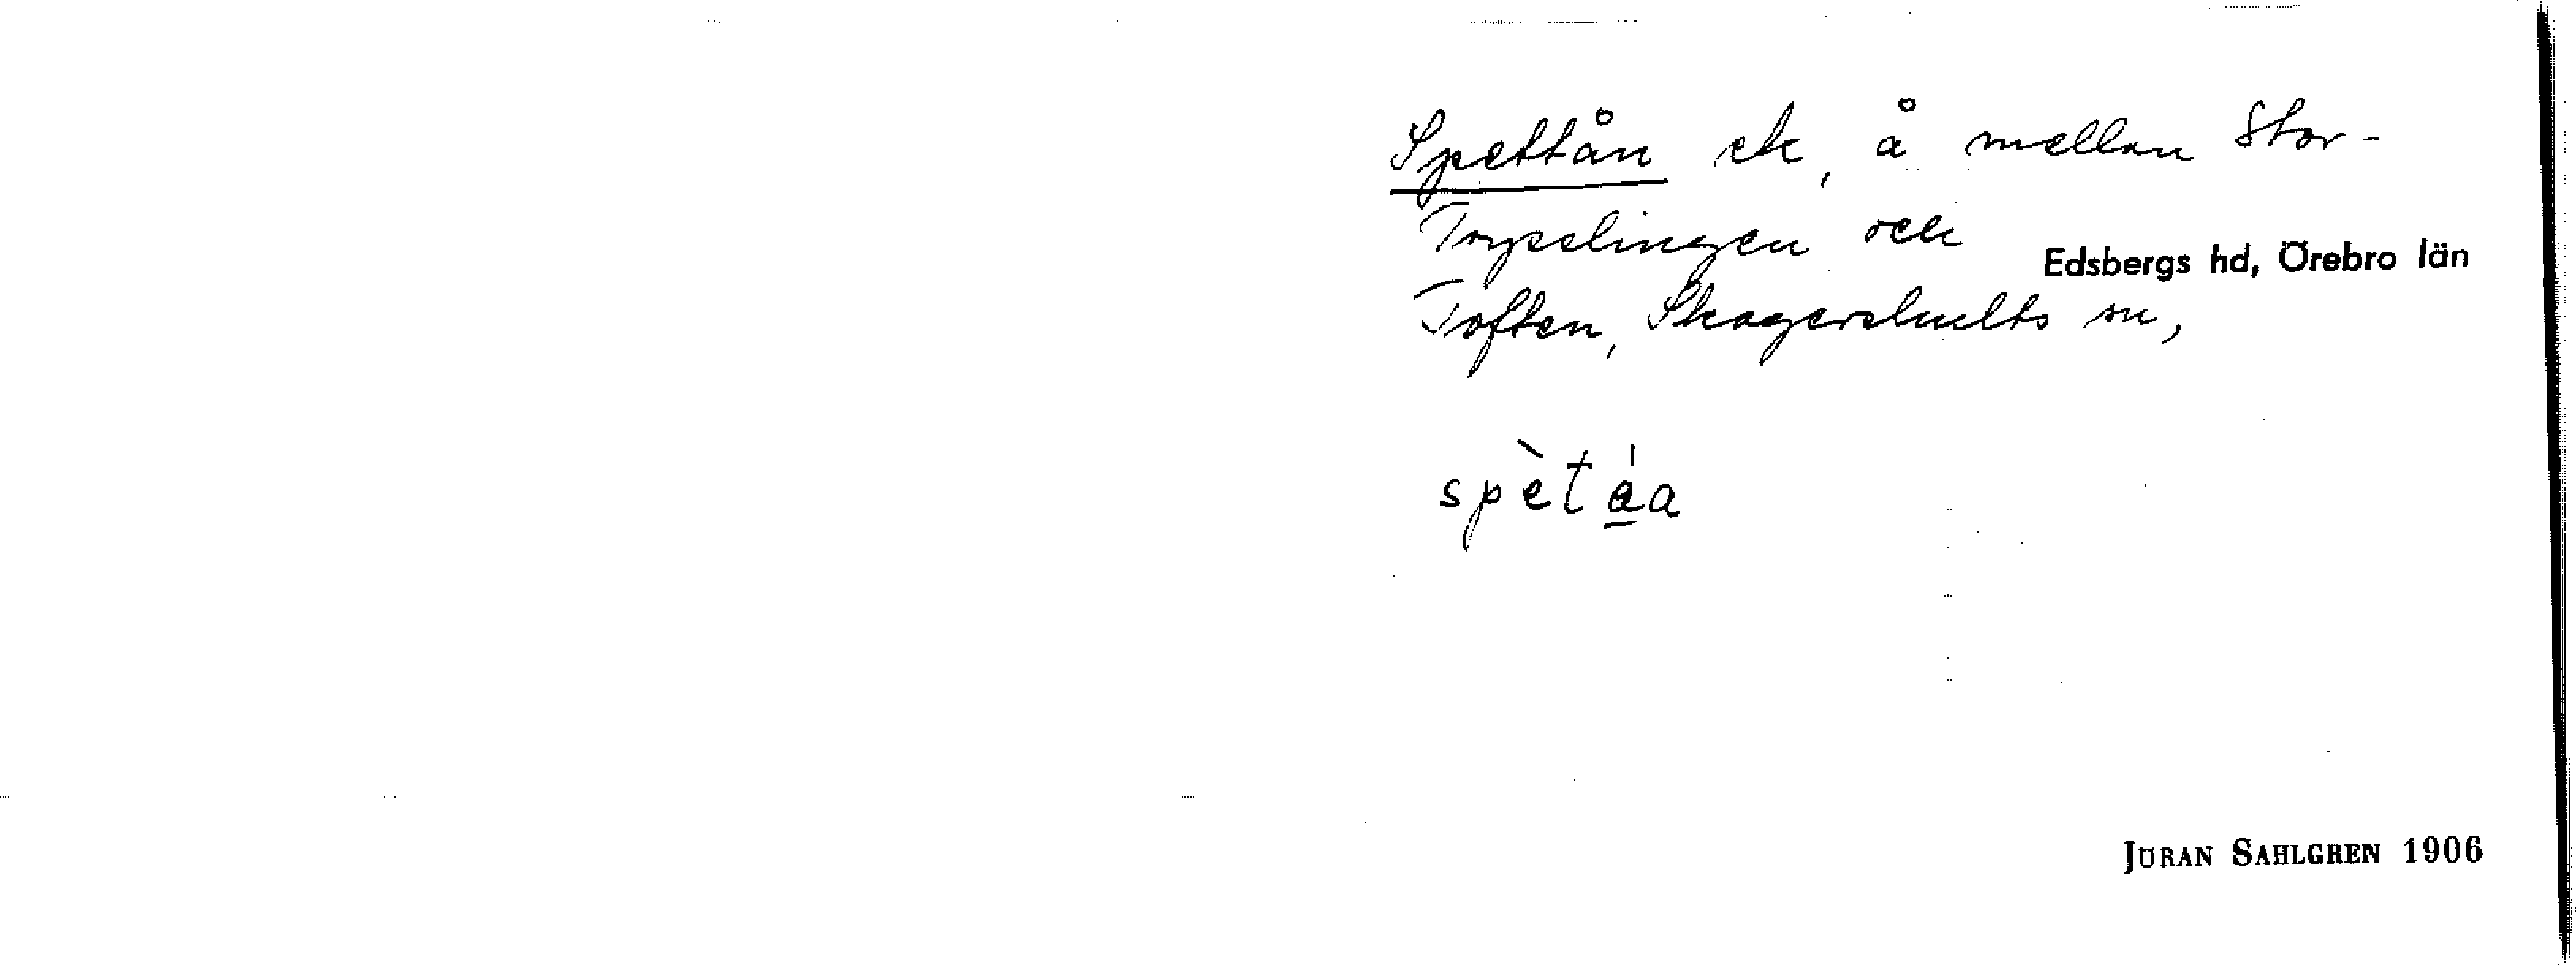 Spettån ek, å mellan Stor-
Trysslingen och
Edsbergs hd, Örebro län
Toften, Skagershults sn,
spèt á̲a
JÖRAN SAHLGREN 1906